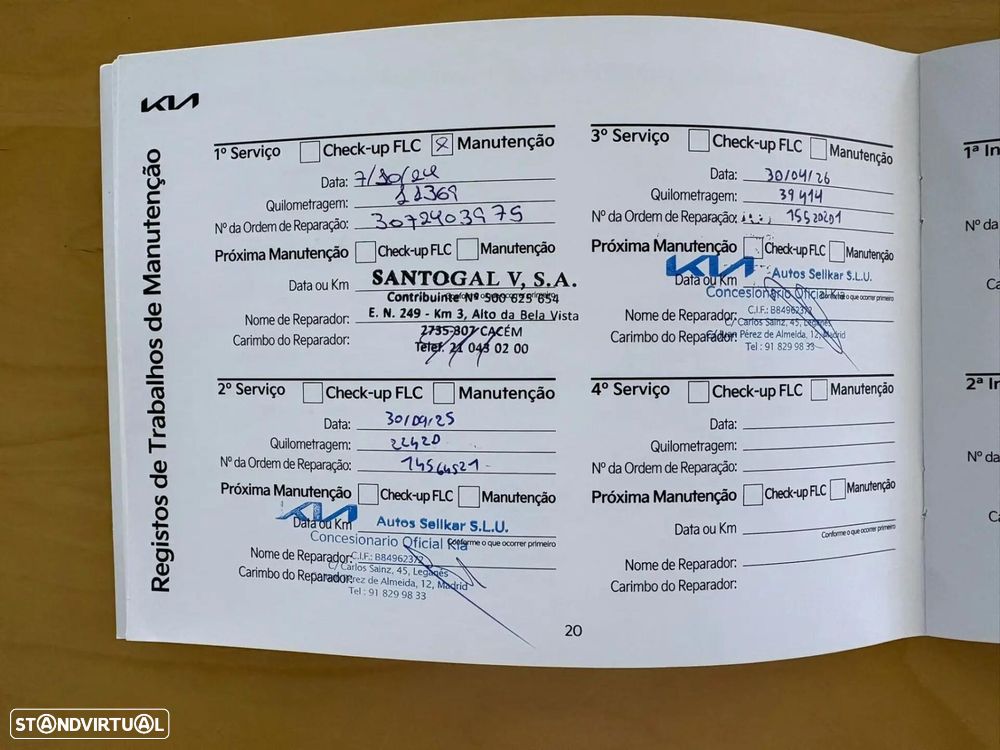 KIA
Registos de Trabalhos de Manutenção
1º Serviço Check-up FLC Manutenção
Data: 7/10/24
Quilometragem: 11369
Nº da Ordem de Reparação: 3072403975
Próxima Manutenção Check-up FLC Manutenção
Data ou Km
SANTOGAL V, S.A.
Contribuinte Nº 500 625 654
E. N. 249 - Km 3, Alto da Bela Vista
2735-307 CACÉM
Telef. 21 043 02 00
Nome de Reparador:
Carimbo do Reparador:
2º Serviço Check-up FLC Manutenção
Data: 30/09/25
Quilometragem: 22420
Nº da Ordem de Reparação: 14564521
Próxima Manutenção Check-up FLC Manutenção
KIA
Data ou Km Autos Sellkar S.L.U.
Concesionario Oficial Kia
Conforme o que ocorrer primeiro
Nome de Reparador:
C.I.F.: B84962372
C/ Carlos Sainz, 45, Leganés
Carimbo do Reparador:
Pérez de Almeida, 12, Madrid
Tel : 91 829 98 33
3º Serviço Check-up FLC Manutenção
Data: 30/04/26
Quilometragem: 39414
Nº da Ordem de Reparação: 15520201
Próxima Manutenção Check-up FLC Manutenção
KIA
Data ou Km Autos Sellkar S.L.U.
Concesionario Oficial Kia
Conforme o que ocorrer primeiro
Nome de Reparador:
C.I.F.: B84962372
C/ Carlos Sainz, 45, Leganés
Carimbo do Reparador:
C/ Juan Pérez de Almeida, 12, Madrid
Tel : 91 829 98 33
4º Serviço Check-up FLC Manutenção
Data:
Quilometragem:
Nº da Ordem de Reparação:
Próxima Manutenção Check-up FLC Manutenção
Data ou Km
Conforme o que ocorrer primeiro
Nome de Reparador:
Carimbo do Reparador:
20
1ª In
Nº da
2ª In
Nº da
STANDVIRTUAL